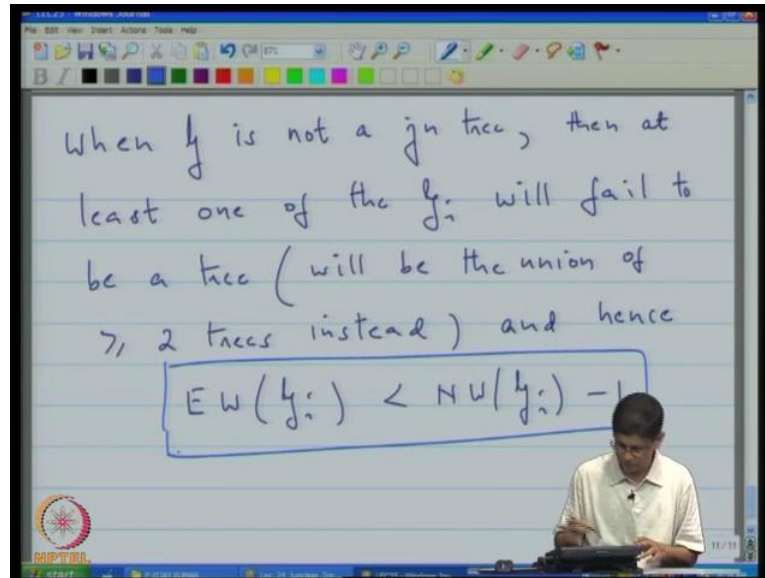 LEC25 - Windows Journal
File Edit View Insert Actions Tools Help
87%
B I
When G is not a jn tree, then at
least one of the G_i will fail to
be a tree ( will be the union of
≥ 2 trees instead ) and hence
EW(G_i) < NW(G_i) - 1
11/11
NPTEL
start